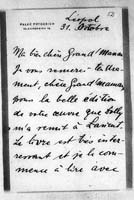 PALEO FRYDERYK
31. Octobre
Ma bien chère Grand'Maman
Je vous remercie
ment, chère Grand'Maman
pour la belle édition
de votre œuvre que
m'a remit à
Le livre est très inté-
ressant et je le com-
mence à lire avec